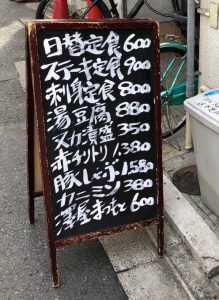 日替定食600
ステーキ定食900
刺身定食800
湯豆腐880
ヌカ漬盛350
赤チリトリ1,380
豚しゃぶ1,580
カニミソ380
澤屋まつもと600